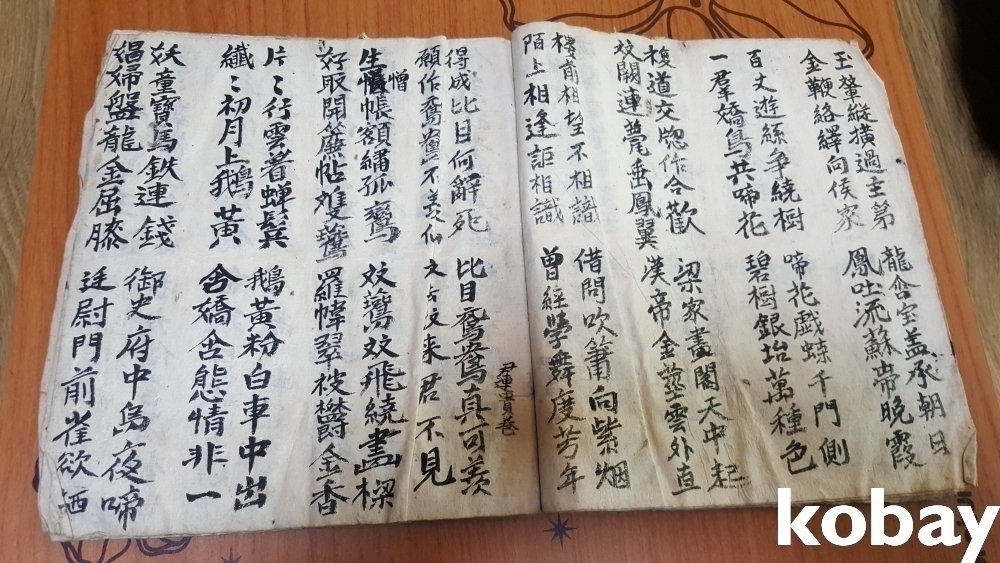 玉輦縱橫過主第
金鞭絡繹向侯家
龍含宝盖承朝日
鳳吐流蘇帶晚霞
百丈遊絲争繞樹
一羣嬌鳥共啼花
啼花戲蝶千門側
碧樹銀坮萬種色
複道交窓作合歡
双闕連甍垂鳳翼
梁家畫閣天中起
漢帝金莖雲外直
樓前相望不相諳
陌上相逢詎相識
借問吹簫向紫烟
曾經學舞度芳年
得成比目何辭死
願作鴛鴦不羡仙
比目鴛鴦真可羡
双去双来君不見
生憎帳額繡孤鸞
憎
好取開簾帖雙鸞
双鸞双飛繞畫樑
羅幃翠被欝金香
片〻行雲着蟬鬂
纖〻初月上鵝黃
鵝黃粉白車中出
含嬌含態情非一
妖童寶馬鉄連錢
娼婦盤龍金屈膝
御史府中烏夜啼
廷尉門前雀欲栖
kobay